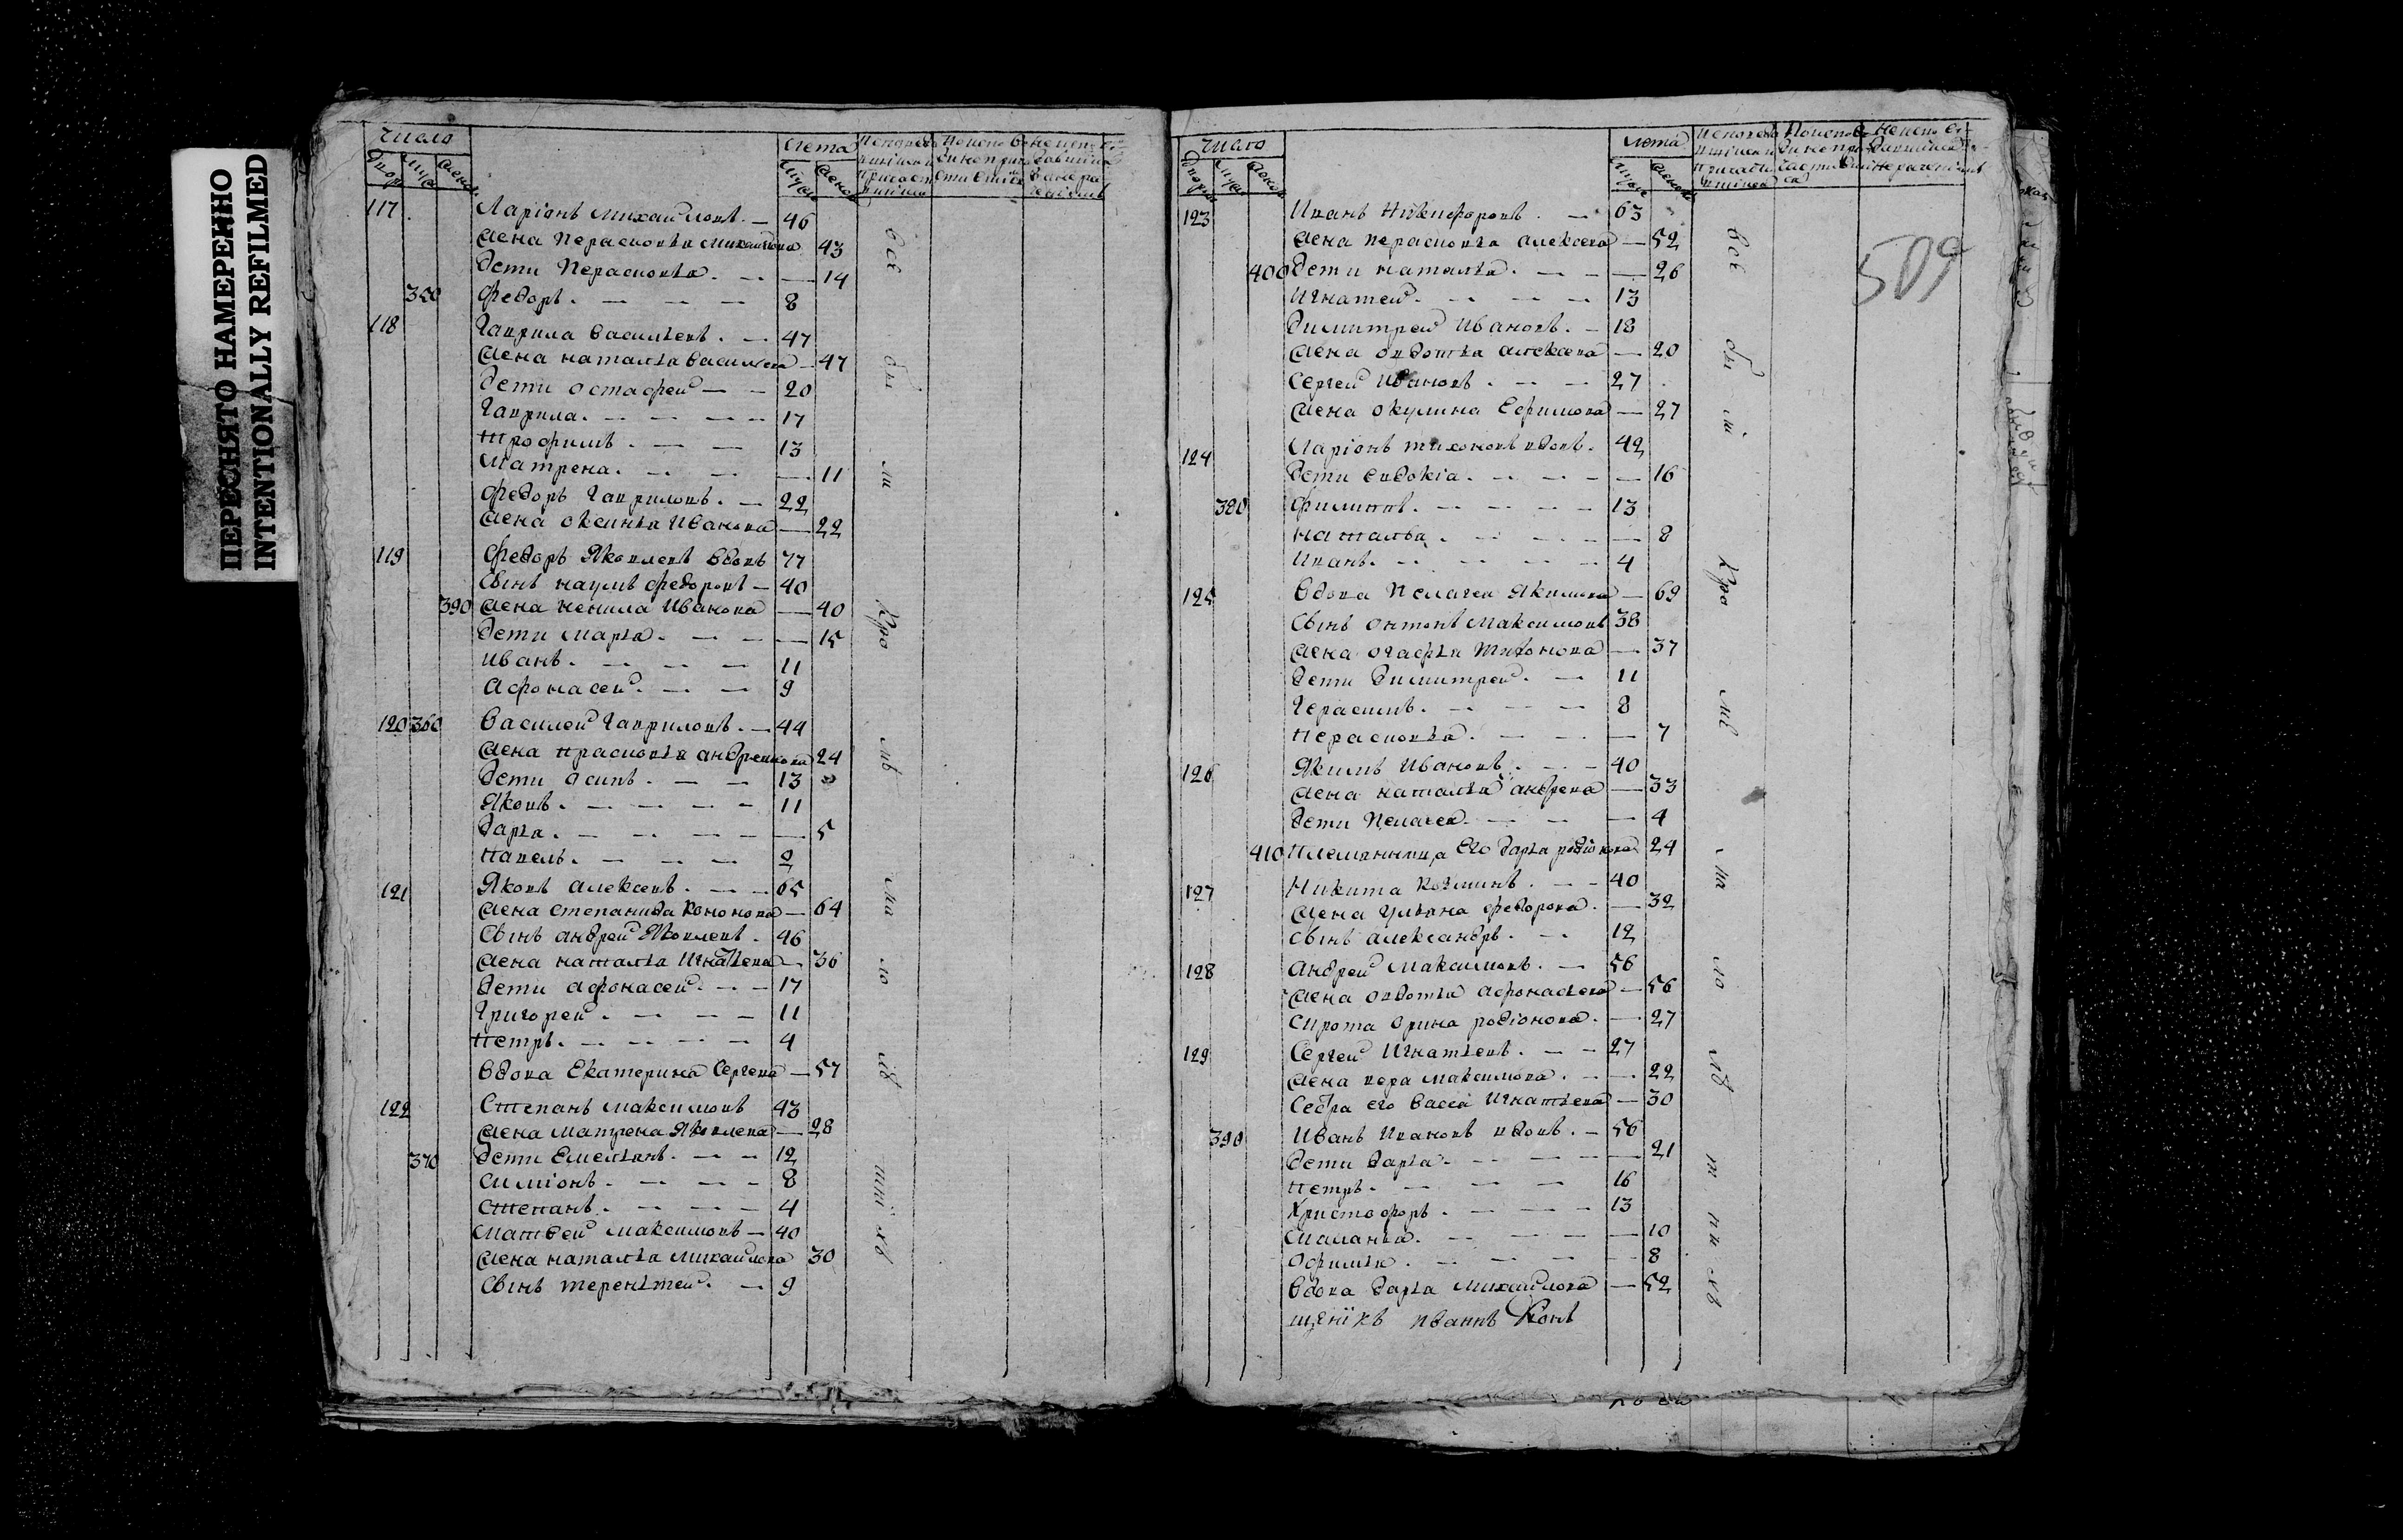 ПЕРЕСНЯТО НАМЕРЕННО
INTENTIONALLY REFILMED
число
лета
двор муж женс
муж женс
117 Ларіонъ Михаиловъ 46
жена Перасковья Михаилова 43
дети Перасковья 14
350 Федоръ 8
118 Гаврила Васильевъ 47
жена наталья Васильева 47
дети остафей 20
Гаврила 17
трофимъ 13
Матрена 11
Федоръ Гавриловъ 22
жена оксинья Иванова 22
119 Федоръ Яковлевъ вдовъ 77
сынъ наумъ федоровъ 40
390 жена ненила Иванова 40
дети марья 15
иванъ 11
афонасей 9
120 360 Василей Гавриловъ 44
жена прасковья андреянова 24
дети осипъ 13
Яковъ 11
дарья 5
павелъ 2
121 Яковъ алексевъ 65
жена степанида Кононова 64
сынъ андрей Яковлевъ 46
жена наталья Игнатьева 36
дети афонасей 17
Григорей 11
петръ 4
вдова Екатерина Сергева 57
122 Степанъ максимовъ 43
жена матрена Яковлева 28
370 дети Емельянъ 12
симіонъ 8
степанъ 4
матвей максимовъ 40
жена наталья михаилова 30
сынъ терентей 9
все бы ли Кро мѣ ма ло лѣ тніхъ
число
лета
двор муж женс
муж женс
509
123 Иванъ Никифоровъ 63
жена перасковья алексева 52
400 дети наталья 26
Игнатей 13
димитрей Ивановъ 18
жена овдотья алексева 20
Сергей Ивановъ 27
жена окулина Ефимова 27
124 Ларіонъ тихоновъ вдовъ 42
дети евдокіа 16
380 филипъ 13
наталья 8
Иванъ 4
125 вдова Пелагея Якимова 69
сынъ онтонъ Максимовъ 38
жена огафья Тихонова 37
дети димитрей 11
Герасимъ 8
перасковья 7
126 Якимъ Ивановъ 40
жена наталья андрева 33
дети Пелагея 4
410 племянница Его дарья родіонова 24
127 Никита Козминъ 40
жена Ульяна федорова 32
сынъ александръ 12
128 андрей Максимовъ 56
жена овдотья афонасьева 56
сирота орина родіонова 27
129 Сергей Игнатьевъ 27
жена вера максимова 22
сестра его васса Игнатьева 30
390 Иванъ Ивановъ вдовъ 56
дети дарья 21
петръ 16
Христофоръ 13
маланья 10
офимья 8
вдова дарья михаилова 52
щенікъ иваннъ
все бы лі Кро мѣ ма ло лѣ т ни хъ